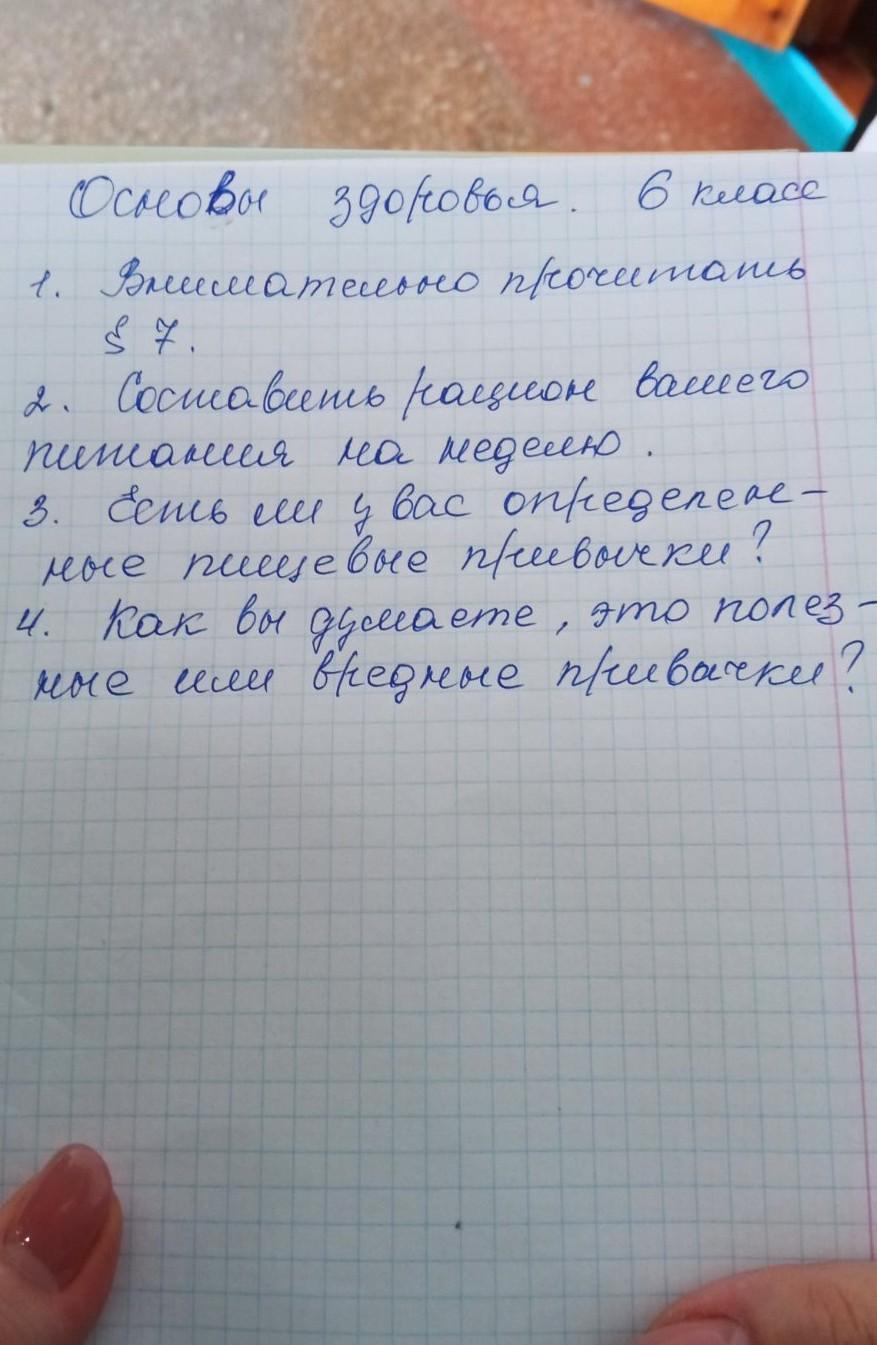 Основы здоровья. 6 класс
1. Внимательно прочитать
§ 7.
2. Составить рацион вашего
питания на неделю.
3. Есть ли у вас определен-
ные пищевые привычки?
4. Как вы думаете, это полез-
ные или вредные привычки?